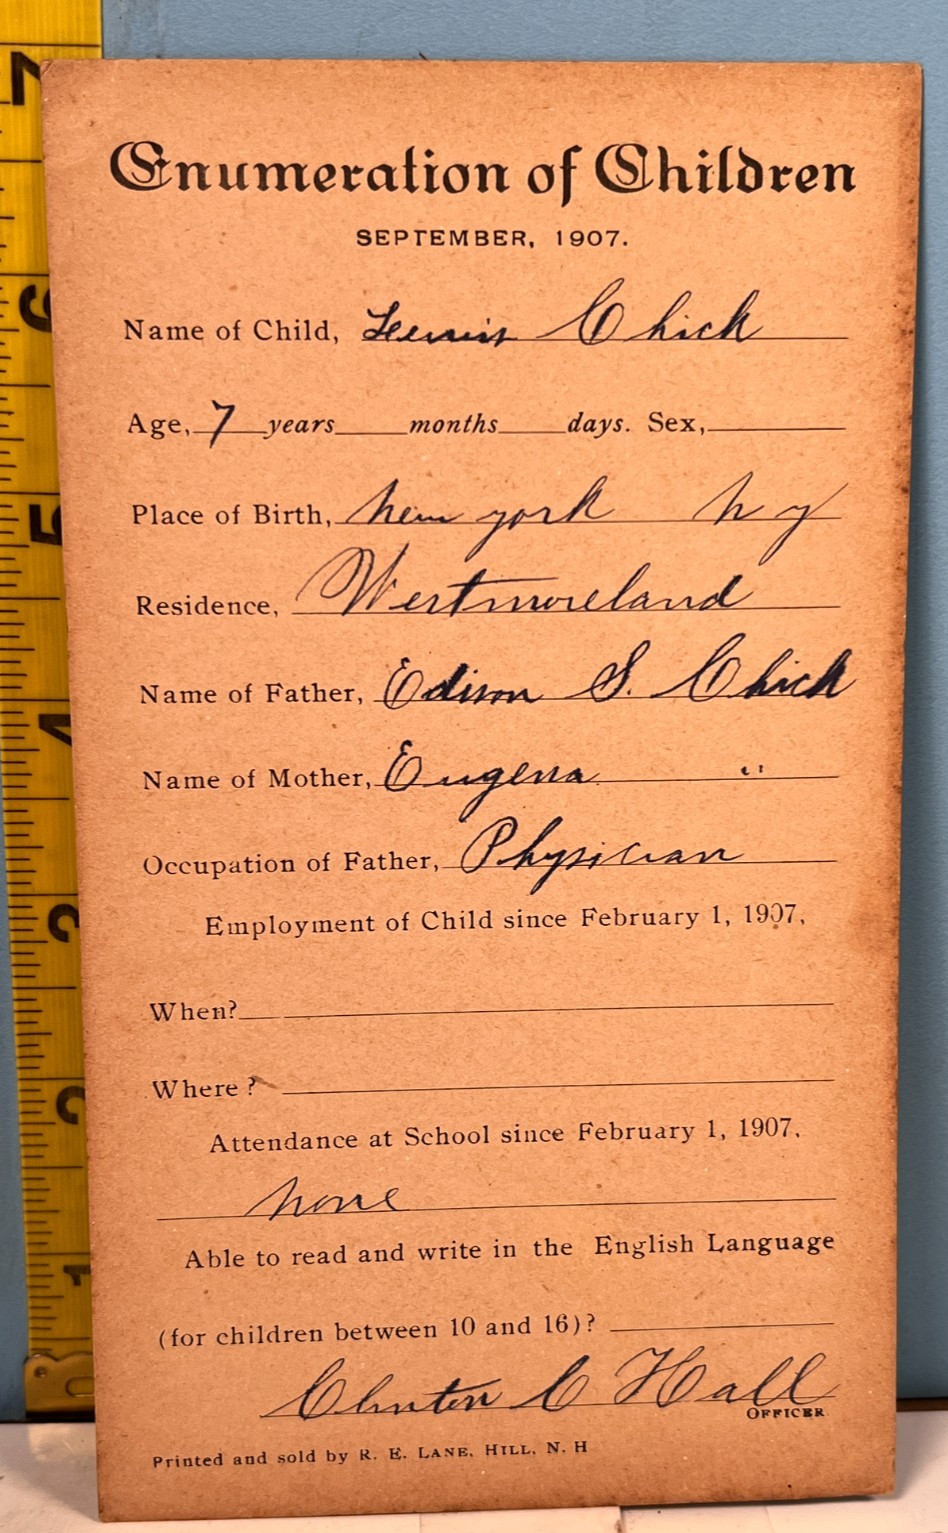 Enumeration of Children
SEPTEMBER, 1907.
Name of Child, Lewis Chick
Age, 7 years months days. Sex,
Place of Birth, New york N y
Residence, Westmoreland
Name of Father, Edison S. Chick
Name of Mother, Eugena "
Occupation of Father, Physician
Employment of Child since February 1, 1907,
When?
Where?
Attendance at School since February 1, 1907,
none
Able to read and write in the English Language
(for children between 10 and 16)?
Clinton C Hall
OFFICER
Printed and sold by R. E. LANE, HILL, N. H
7
6
5
4
3
2
1